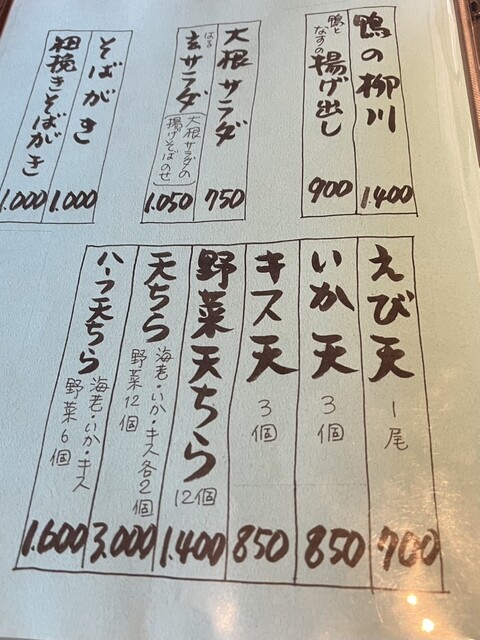 鴨の柳川
1.400
鴨となすの揚げ出し
900
大根サラダ
750
はる
玄サラダ
(大根サラダの
揚げそばのせ)
1.050
そばがき
1.000
粗挽きそばがき
1.000
えび天
1尾
700
いか天
3個
850
キス天
3個
850
野菜天ちら
12個
1.400
天ちら
海老・いか・キス各2個
野菜12個
3.000
ハーフ天ちら
海老・いか・キス
野菜6個
1.600